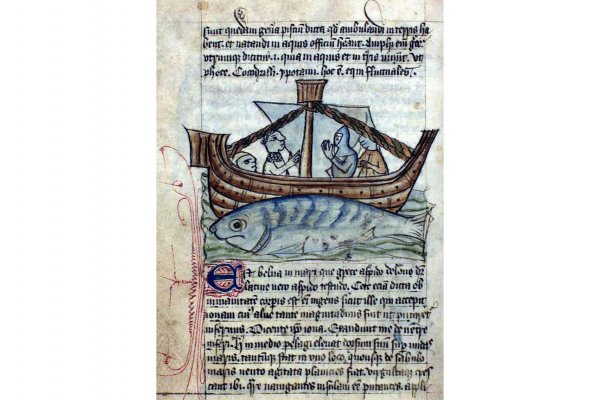 sunt quedam geña pisciū dicta qđ ambulandi in terris ha
bent. et natandi in aquis officiū heāt. Amphi em̄
dicitur .i. quia in aquis et in tr̄is uiuūt. Vt
phoce. Cocodrilli. ypotami. hoc ē. equi fluctuales.
Est belua in mari que grece aspido delone dr̄
latine uero aspido testudo. Cete eciā dicta ob
inmanitatē corpis est em̄ ingens sicut ille qui excepit
ionam cuiꝰ aluꝰ tante magnitudinis fuit ut putaret
infernus. Dicente ip̄o iona. Exaudiuit me de uentre
inferi. in medio pelagi eleuat dorsum suū sup undas
maris. tantūque stat in uno loco. quousque de sabulo
maris uento agitata planicies fiat. virgultaque cres
cant ibi. nauigantes insulam eē putantes. appli